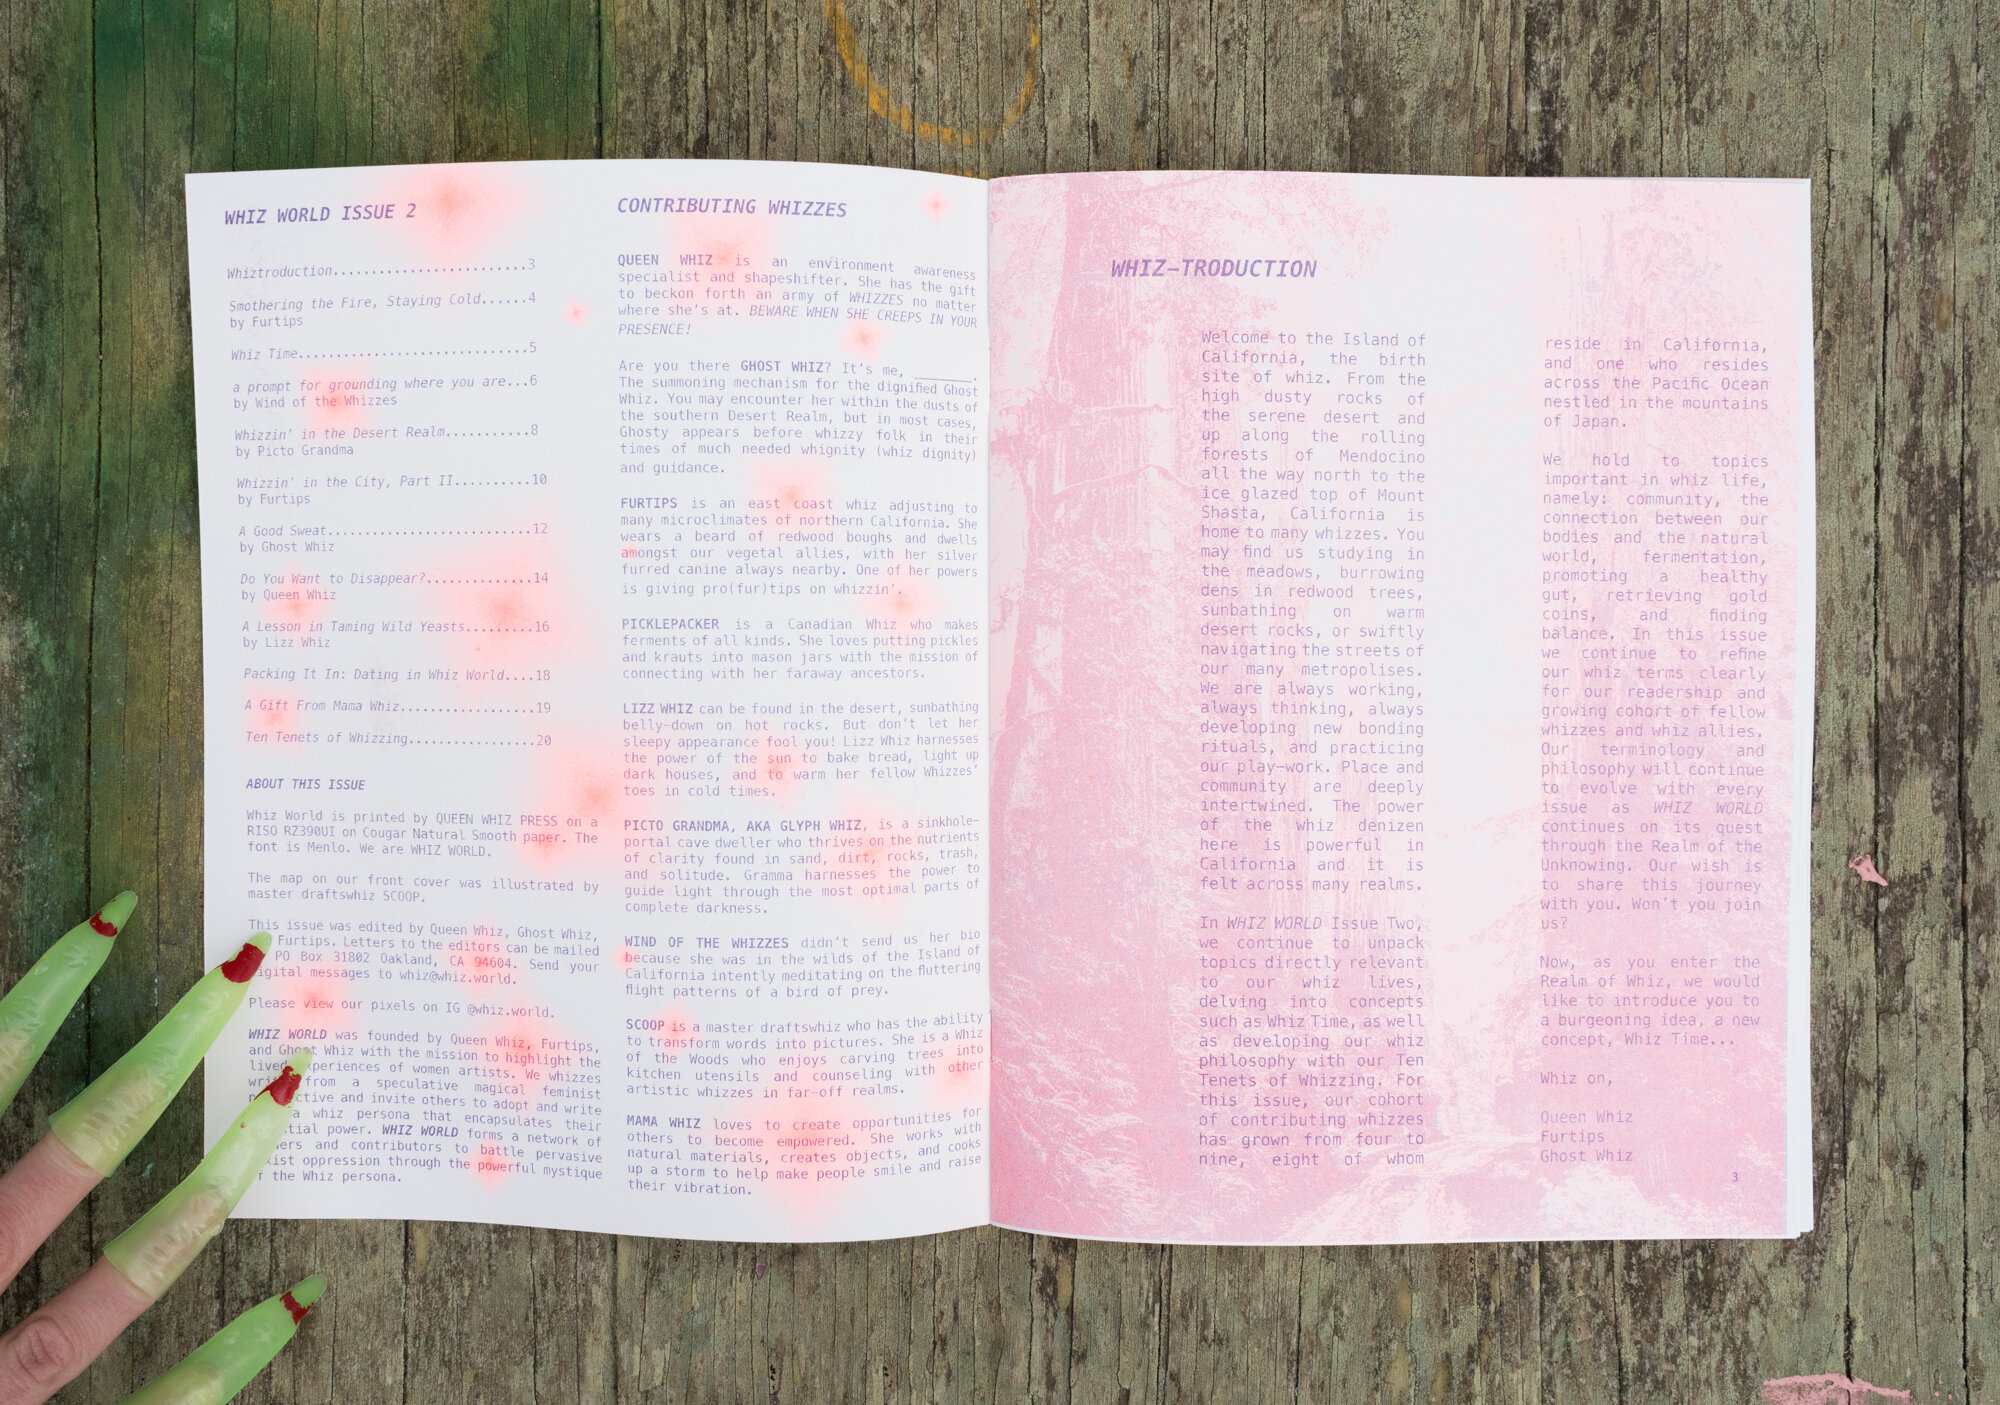 WHIZ WORLD ISSUE 2
Whiztroduction.........................3
Smothering the Fire, Staying Cold......4
by Furtips
Whiz Time..............................5
a prompt for grounding where you are...6
by Wind of the Whizzes
Whizzin' in the Desert Realm...........8
by Picto Grandma
Whizzin' in the City, Part II..........10
by Furtips
A Good Sweat...........................12
by Ghost Whiz
Do You Want to Disappear?..............14
by Queen Whiz
A Lesson in Taming Wild Yeasts.........16
by Lizz Whiz
Packing It In: Dating in Whiz World....18
A Gift From Mama Whiz..................19
Ten Tenets of Whizzing.................20
ABOUT THIS ISSUE
Whiz World is printed by QUEEN WHIZ PRESS on a
RISO RZ390UI on Cougar Natural Smooth paper. The
font is Menlo. We are WHIZ WORLD.
The map on our front cover was illustrated by
master draftswhiz SCOOP.
This issue was edited by Queen Whiz, Ghost Whiz,
Furtips. Letters to the editors can be mailed
PO Box 31802 Oakland, CA 94604. Send your
digital messages to whiz@whiz.world.
Please view our pixels on IG @whiz.world.
WHIZ WORLD was founded by Queen Whiz, Furtips,
and Ghost Whiz with the mission to highlight the
lived experiences of women artists. We whizzes
from a speculative magical feminist
and invite others to adopt and write
a whiz persona that encapsulates their
power. WHIZ WORLD forms a network of
and contributors to battle pervasive
oppression through the powerful mystique
of the Whiz persona.
CONTRIBUTING WHIZZES
QUEEN WHIZ is an environment awareness
specialist and shapeshifter. She has the gift
to beckon forth an army of WHIZZES no matter
where she's at. BEWARE WHEN SHE CREEPS IN YOUR
PRESENCE!
Are you there GHOST WHIZ? It's me, ________.
The summoning mechanism for the dignified Ghost
Whiz. You may encounter her within the dusts of
the southern Desert Realm, but in most cases,
Ghosty appears before whizzy folk in their
times of much needed whignity (whiz dignity)
and guidance.
FURTIPS is an east coast whiz adjusting to
many microclimates of northern California. She
wears a beard of redwood boughs and dwells
amongst our vegetal allies, with her silver
furred canine always nearby. One of her powers
is giving pro(fur)tips on whizzin'.
PICKLEPACKER is a Canadian Whiz who makes
ferments of all kinds. She loves putting pickles
and krauts into mason jars with the mission of
connecting with her faraway ancestors.
LIZZ WHIZ can be found in the desert, sunbathing
belly-down on hot rocks. But don't let her
sleepy appearance fool you! Lizz Whiz harnesses
the power of the sun to bake bread, light up
dark houses, and to warm her fellow Whizzes'
toes in cold times.
PICTO GRANDMA, AKA GLYPH WHIZ, is a sinkhole-
portal cave dweller who thrives on the nutrients
of clarity found in sand, dirt, rocks, trash,
and solitude. Gramma harnesses the power to
guide light through the most optimal parts of
complete darkness.
WIND OF THE WHIZZES didn't send us her bio
because she was in the wilds of the Island of
California intently meditating on the fluttering
flight patterns of a bird of prey.
SCOOP is a master draftswhiz who has the ability
to transform words into pictures. She is a Whiz
of the Woods who enjoys carving trees into
kitchen utensils and counseling with other
artistic whizzes in far-off realms.
MAMA WHIZ loves to create opportunities for
others to become empowered. She works with
natural materials, creates objects, and cooks
up a storm to help make people smile and raise
their vibration.
WHIZ-TRODUCTION
Welcome to the Island of
California, the birth
site of whiz. From the
high dusty rocks of
the serene desert and
up along the rolling
forests of Mendocino
all the way north to the
ice glazed top of Mount
Shasta, California is
home to many whizzes. You
may find us studying in
the meadows, burrowing
dens in redwood trees,
sunbathing on warm
desert rocks, or swiftly
navigating the streets of
our many metropolises.
We are always working,
always thinking, always
developing new bonding
rituals, and practicing
our play-work. Place and
community are deeply
intertwined. The power
of the whiz denizen
here is powerful in
California and it is
felt across many realms.
In WHIZ WORLD Issue Two,
we continue to unpack
topics directly relevant
to our whiz lives,
delving into concepts
such as Whiz Time, as well
as developing our whiz
philosophy with our Ten
Tenets of Whizzing. For
this issue, our cohort
of contributing whizzes
has grown from four to
nine, eight of whom
reside in California,
and one who resides
across the Pacific Ocean
nestled in the mountains
of Japan.
We hold to topics
important in whiz life,
namely: community, the
connection between our
bodies and the natural
world, fermentation,
promoting a healthy
gut, retrieving gold
coins, and finding
balance. In this issue
we continue to refine
our whiz terms clearly
for our readership and
growing cohort of fellow
whizzes and whiz allies.
Our terminology and
philosophy will continue
to evolve with every
issue as WHIZ WORLD
continues on its quest
through the Realm of the
Unknowing. Our wish is
to share this journey
with you. Won't you join
us?
Now, as you enter the
Realm of Whiz, we would
like to introduce you to
a burgeoning idea, a new
concept, Whiz Time...
Whiz on,
Queen Whiz
Furtips
Ghost Whiz
3